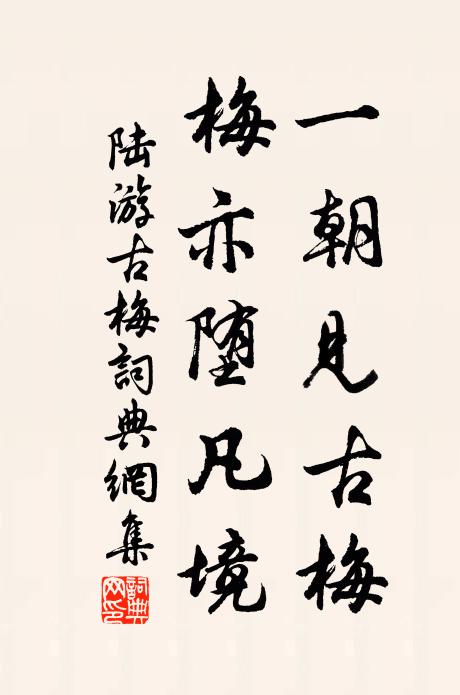 一朝见古梅
梅亦堕凡境
陆游古梅詞典網集
詞典
网印